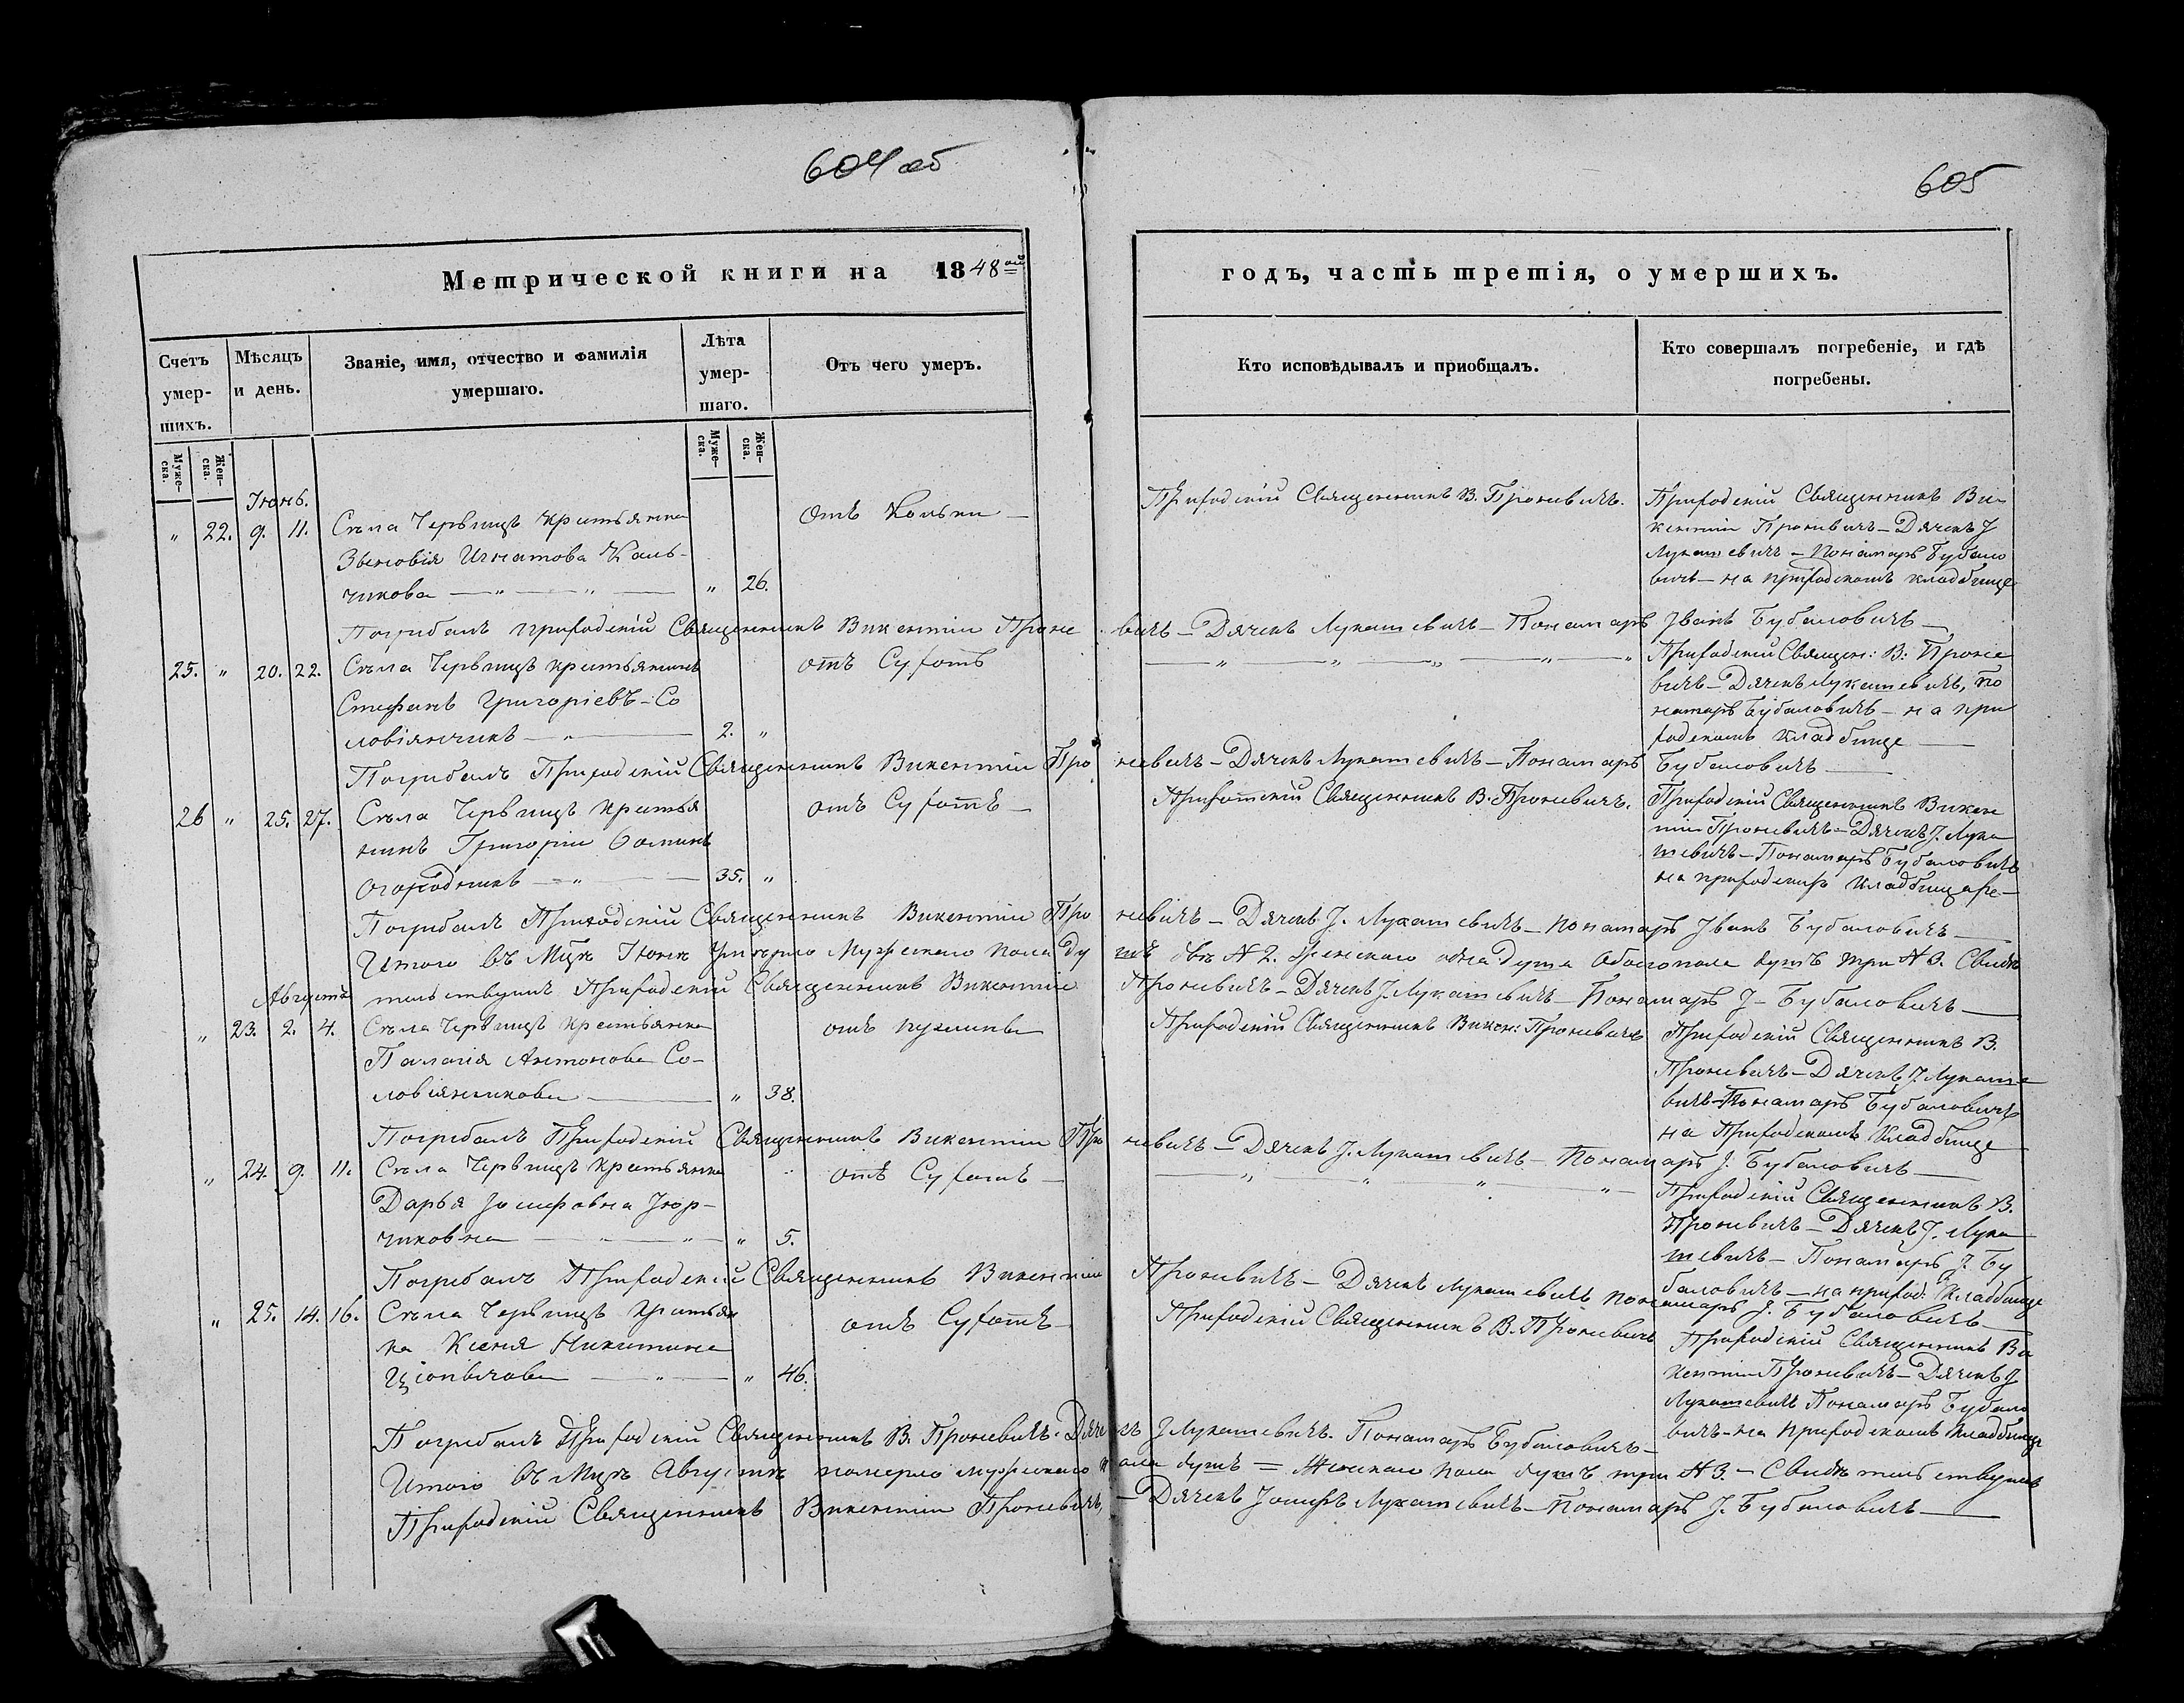 604 об
605
Метрической книги на 1848ой
годъ, часть третія, о умершихъ.
Счетъ умер-шихъ.
Мѣсяцъ и день.
Званіе, имя, отчество и фамилія умершаго.
Лѣта умер-шаго.
Отъ чего умеръ.
Кто исповѣдывалъ и приобщалъ.
Кто совершалъ погребеніе, и гдѣ погребены.
Муже-ска.
Жен-ска.
Муже-ска.
Жен-ска.
Іюнь.
" 22. 9. 11. Села Червищъ крестьянка
Зѣновія Игнатова Каль-
чикова " 26.
отъ Кольки
Приходскій Священникъ В. Проневичъ.
Приходскій Священникъ Ви-
кентіи Проневичъ - Дячекъ І
Лукашевичъ - Понамаръ Бубало
вичъ - на приходскомъ кладбище
Погребалъ приходскій Священникъ Викентіи Проне
вичъ - Дячекъ Лукашевичъ - Понамаръ Іванъ Бубаловичъ
25. " 20. 22. Села Червищъ крестьянинъ
Стефанъ Григоріевъ - Со
ловіянчикъ 2. "
отъ Сухотъ
Приходскій Священ: В: Проне
вичъ - Дячекъ Лукашевичъ, По
намаръ Бубаловичъ - на при
ходскомъ кладбище
Погребалъ Приходскій Священникъ Викентіи Про
невичъ - Дячекъ Лукашевичъ - Понамаръ Бубаловичъ
26 " 25. 27. Села Червищъ крестья
нинъ Григоріи Фоминъ
Огородникъ 35. "
отъ Сухотъ
Приходскій Священникъ В. Проневичъ.
Приходскій Священникъ Викен
тіи Проневичъ - Дячекъ І. Лука
шевичъ - Понамаръ Бубаловичъ
на приходскихъ кладбищахъ
Погребалъ Приходскій Священникъ Викентіи Про
невичъ - Дячекъ І. Лукашевичъ - Понамаръ Іванъ Бубаловичъ
Итого въ Мцѣ Іюнѣ умерло Мужескаго пола ду
шъ двѣ № 2. женскаго одна душа Обоего пола душъ три № 3. Свидѣ
тельствуемъ Приходскій Священникъ Викентіи
Проневичъ - Дячекъ І. Лукашевичъ - Понамаръ І - Бубаловичъ
Августъ
" 23. 2. 4. Села Червищъ крестьянка
Палагія Антонова Со-
ловіянчикова " 38.
Приходскій Священникъ Викен: Проневичъ
Приходскій Священникъ В.
Проневичъ - Дячекъ І. Лукаше
вичъ - Понамаръ Бубаловичъ
на Приходскомъ Кладбище
Погребалъ Приходскій Священникъ Викентіи Про
невичъ - Дячекъ І. Лукашевичъ - Понамаръ І. Бубаловичъ
" 24. 9. 11. Села Червищъ крестьянка
Дарья Іосифовна Јюр-
чиковна " 5.
отъ Сухотъ
Приходскій Священникъ В.
Проневичъ - Дячекъ І. Лука
шевичъ - Понамаръ І. Бу
баловичъ - на приход: Кладбище
Погребалъ Приходскій Священникъ Викентіи
Проневичъ - Дячекъ Лукашевичъ Понамаръ І. Бубаловичъ
" 25. 14. 16. Села Червищъ крестьян
ка Ксенія Никитина
" 46.
отъ Сухотъ
Приходскій Священникъ В. Проневичъ
Приходскій Священникъ Ви
кентіи Проневичъ - Дячекъ І
Лукашевичъ Понамаръ Бубало
вичъ - на Приходскомъ Кладбище
Погребалъ Приходскій Священникъ В. Проневичъ - Дяче
къ І Лукашевичъ. Понамаръ Бубаловичъ
Итого въ Мцѣ Августѣ померло мужескаго п
ола душъ = Женскаго пола душъ три № 3. - Свидѣтельствуемъ
Приходскій Священникъ Викентіи Проневичъ,
- Дячекъ Іосифъ Лукашевичъ - Понамаръ І. Бубаловичъ